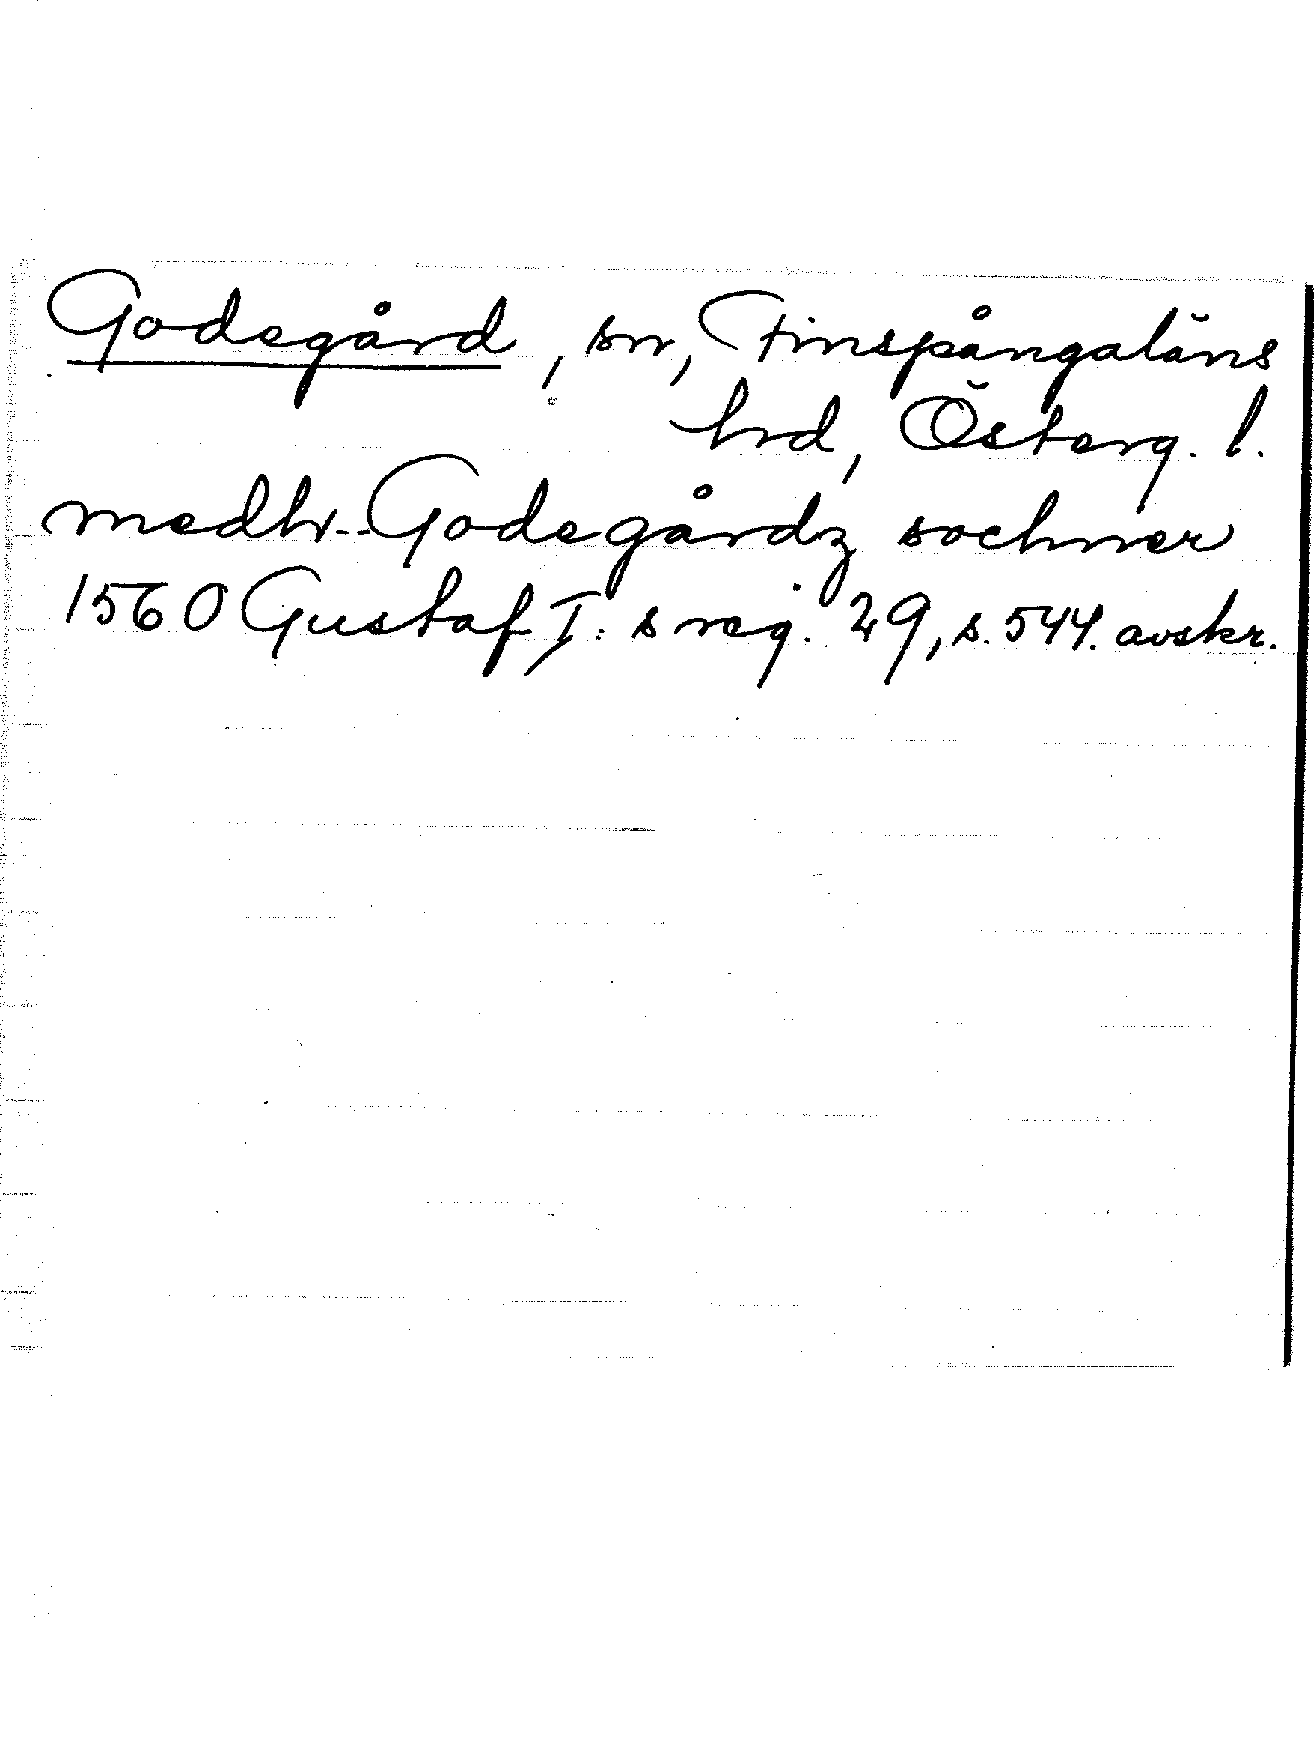 Godegård, sn, Finspångaläns
hrd, Österg. l.
medh Godegårdz sochner
1560 Gustaf I:s reg. 29, s. 544. avskr.